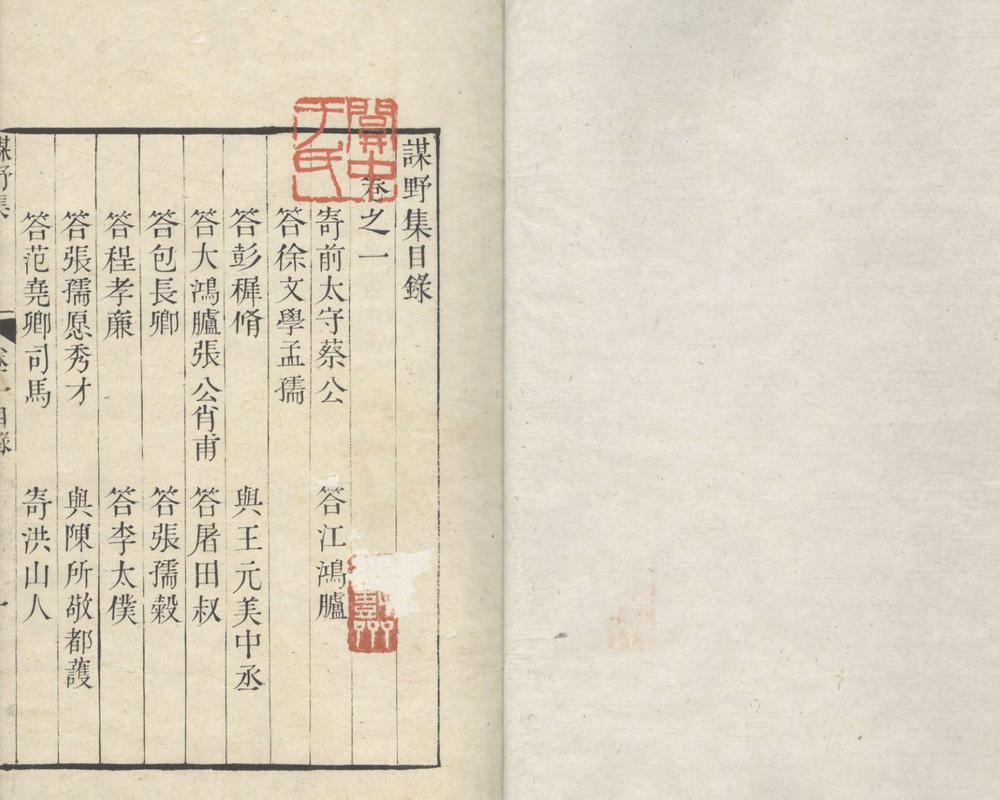 謀野集目錄
卷之一
寄前太守蔡公　答江鴻臚
答徐文學孟孺
答彭穉脩　與王元美中丞
答大鴻臚張公肖甫　答屠田叔
答包長卿　答張孺穀
答程孝廉　答李太僕
答張孺愿秀才　與陳所敬都護
答范堯卿司馬　寄洪山人
謀野集　卷一目錄　一
中
于氏